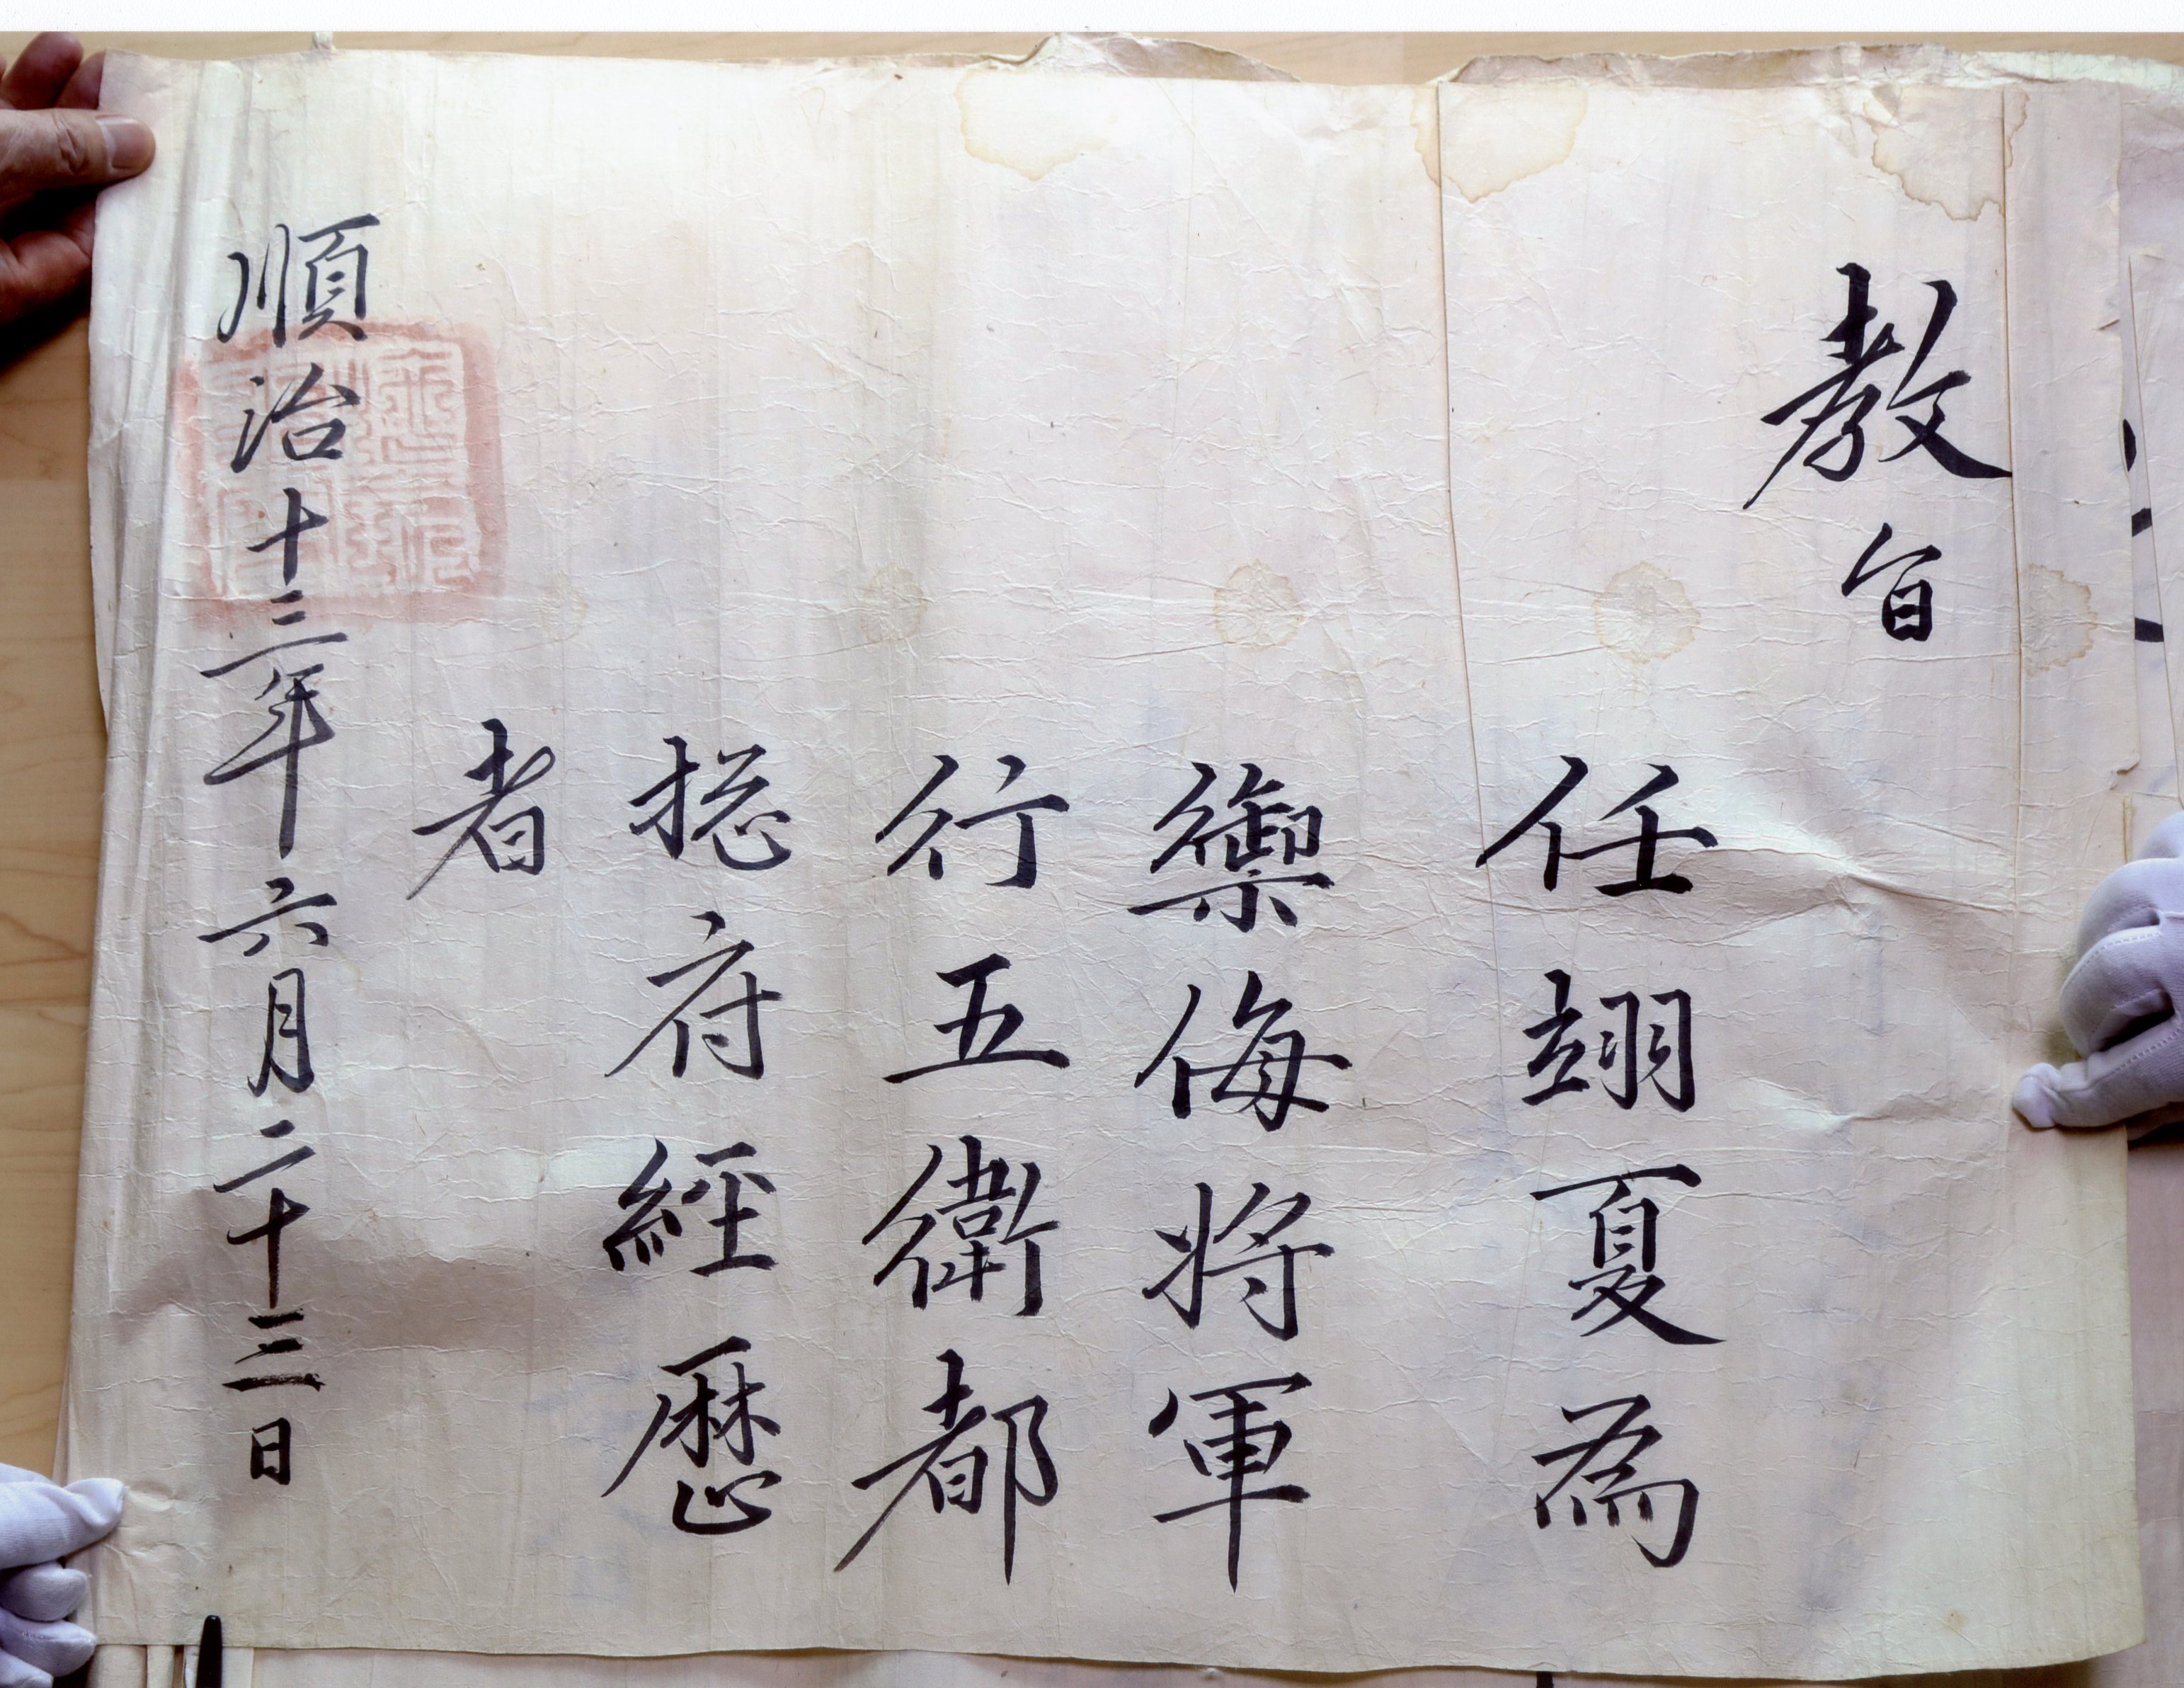 教旨
任翊夏為
禦侮將軍
行五衛都
摠府經歷
者
順治十三年六月二十三日